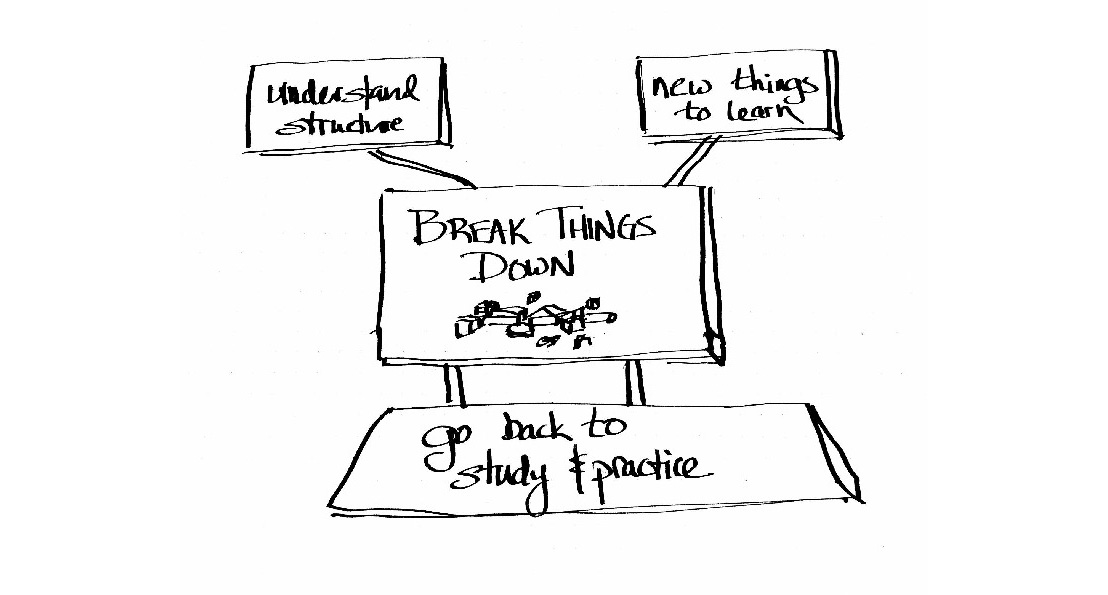 understand
structure
new things
to learn
BREAK THINGS
DOWN
go back to
study & practice